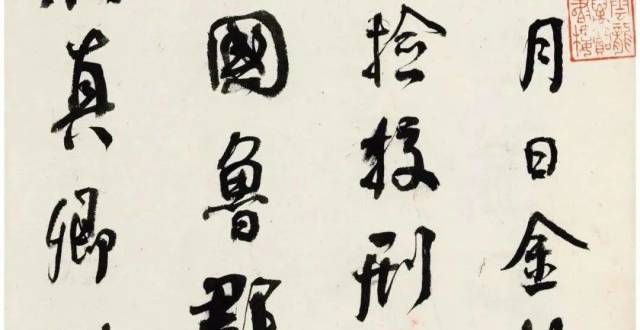 月日金
捡校刑
國魯郡
真卿